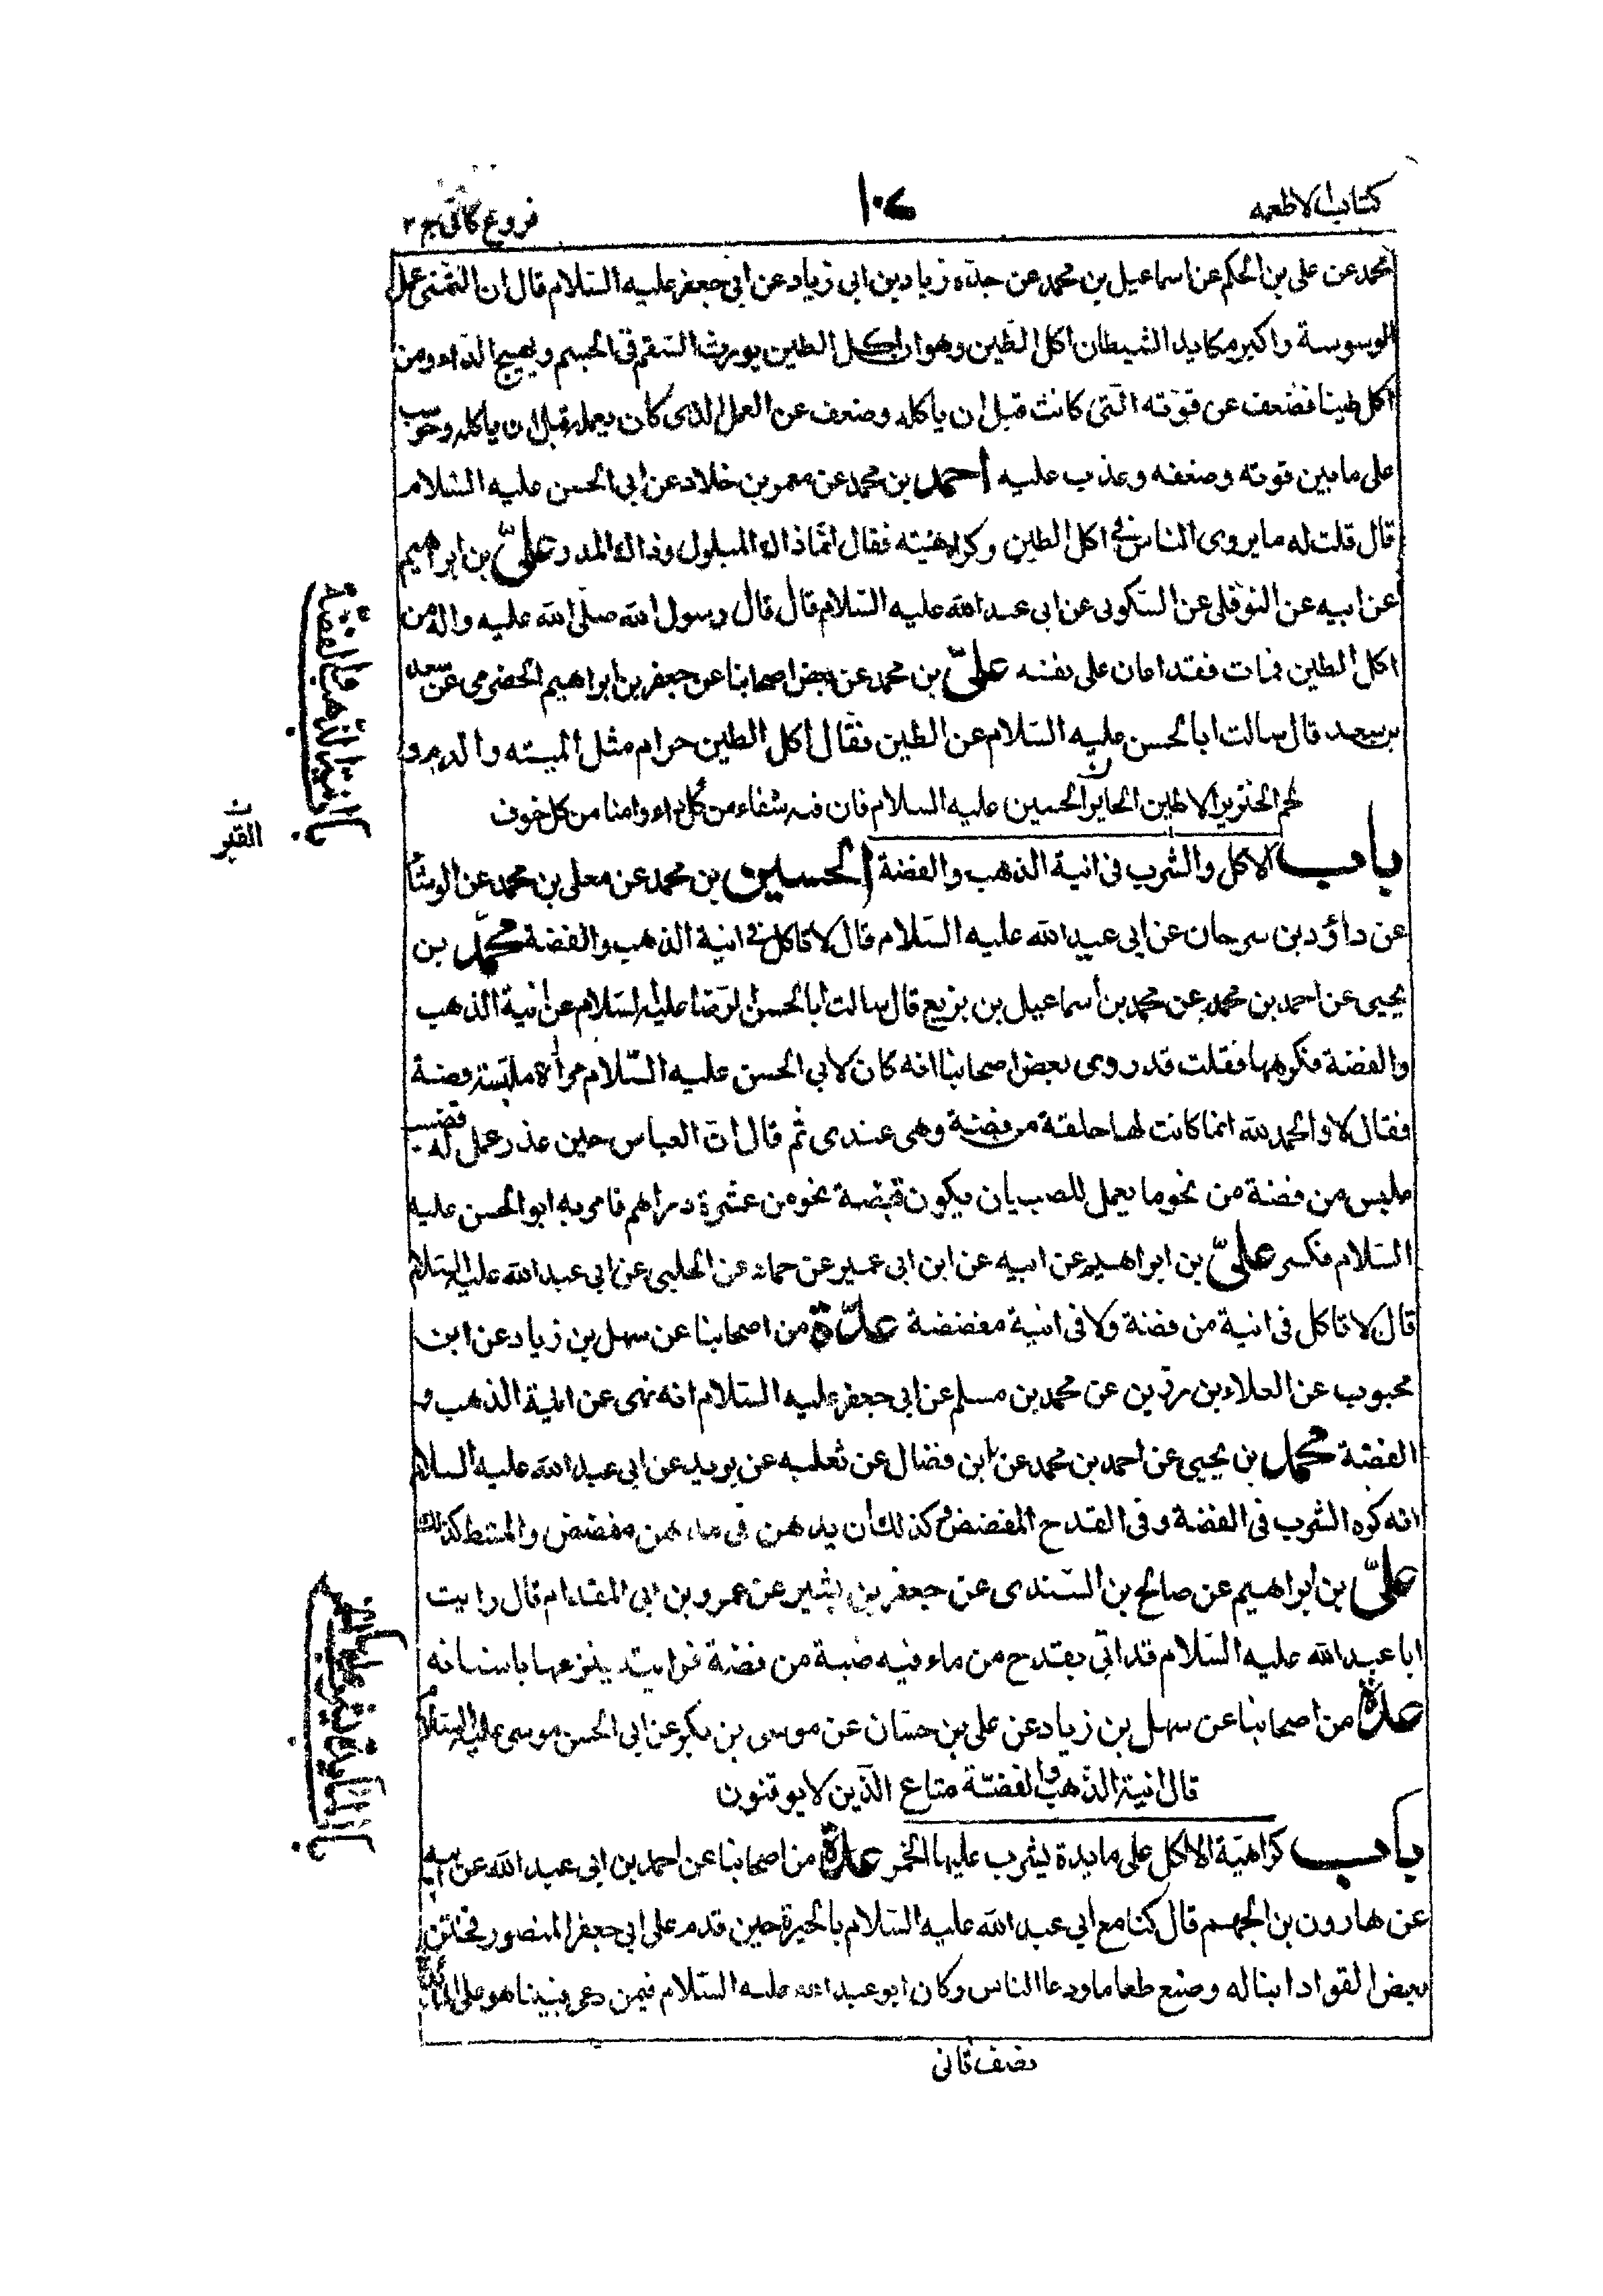 كتاب الاطعمه
١٠٧
فروع كافى ج ٢
محمد عن على بن الحكم عن اسماعيل بن محمد عن جدّه زياد بن ابى زياد عن ابى جعفر عليه السّلام قال ان التمنى عمل
الوسوسة واكبر مكايد الشيطان اكل الطّين وهو ان اكل الطين يورث السّقم فى الجسم ويهيج الدّاء ومن
اكل طينا فضعف عن قوّته الّتى كانت قبل ان ياكله وضعف عن العمل الذى كان يعمله قبل ان ياكله وحوسب
على ما بين قوته وضعفه وعذب عليه احمد بن محمد عن معمر بن خلاد عن ابى الحسن عليه السّلام
قال قلت له ما يروى الناس فى اكل الطين وكراهيته فقال انّما ذاك المبلول وذاك المدر علىّ بن ابراهيم
عن ابيه عن النوفلى عن السّكونى عن ابى عبد الله عليه السّلام قال قال رسول الله صلّى الله عليه واله من
اكل الطين فمات فقد اعان على نفسه علىّ بن محمد عن بعض اصحابنا عن جعفر بن ابراهيم الحضرمى عن سعد
بن سعد قال سالت ابا الحسن عليه السّلام عن الطّين فقال اكل الطين حرام مثل الميته والدم و
لحم الخنزير الا طين الحاير الحسين عليه السلام فان فيه شفاء من كل داء وامنا من كل خوف
باب الاكل والشرب فى انية الذهب والفضة الحسين بن محمد عن معلى بن محمد عن الوشّا
عن داؤد بن سرحان عن ابى عبد الله عليه السّلام قال لا تاكل فى انية الذهب والفضة محمّد بن
يحيى عن احمد بن محمد عن محمد بن اسماعيل بن بزيع قال سالت ابا الحسن الرّضا عليه السّلام عن انية الذهب
والفضة فكرهها فقلت قد روى بعض اصحابنا انه كان لابى الحسن عليه السّلام مرأة ملبّسة فضة
فقال لا والحمد لله انما كانت لها حلقة من فضّة وهى عندى ثم قال انّ العباس حين عذر عمل له قضيب
ملبس من فضة من نحو ما يعمل للصبيان يكون قبضة نحو من عشرة دراهم فامر به ابو الحسن عليه
السّلام فكسر علىّ بن ابراهيم عن ابيه عن ابن ابى عمير عن حماد عن الحلبى عن ابى عبد الله عليه السّلام
قال لا تاكل فى انية من فضة ولا فى انية مفضضة عدّة من اصحابنا عن سهل بن زياد عن ابن
محبوب عن العلاء بن رزين عن محمد بن مسلم عن ابى جعفر عليه السّلام انه نهى عن انية الذهب و
الفضّة محمد بن يحيى عن احمد بن محمد عن ابن فضال عن ثعلبه عن بريد عن ابى عبد الله عليه السلام
انه كره الشرب فى الفضة وفى القدح المفضض وكذلك ان يدهن فى مدهن مفضض والمشط كذلك
علىّ بن ابراهيم عن صالح بن السّندى عن جعفر بن بشير عن عمرو بن ابى المقدام قال رايت
ابا عبد الله عليه السّلام قد اتى بقدح من ماء فيه ضبة من فضة فرايته ينزعها باسنانه
عدّة من اصحابنا عن سهل بن زياد عن على بن حسّان عن موسى بن بكر عن ابى الحسن موسى عليه السّلام
قال انية الذّهب والفضّة متاع الّذين لا يوقنون
باب كراهيّة الاكل على مايدة يشرب عليها الخمر عدّة من اصحابنا عن احمد بن ابى عبد الله عن ابيه
عن هارون بن الجهم قال كنا مع ابى عبد الله عليه السّلام بالحيرة حين قدم على ابى جعفر المنصور فختن
بعض القواد ابنا له وصنع طعاما ودعا الناس وكان ابو عبد الله عليه السّلام فيمن دعى فبينا هو على المائدة
القبر
نصف ثانى